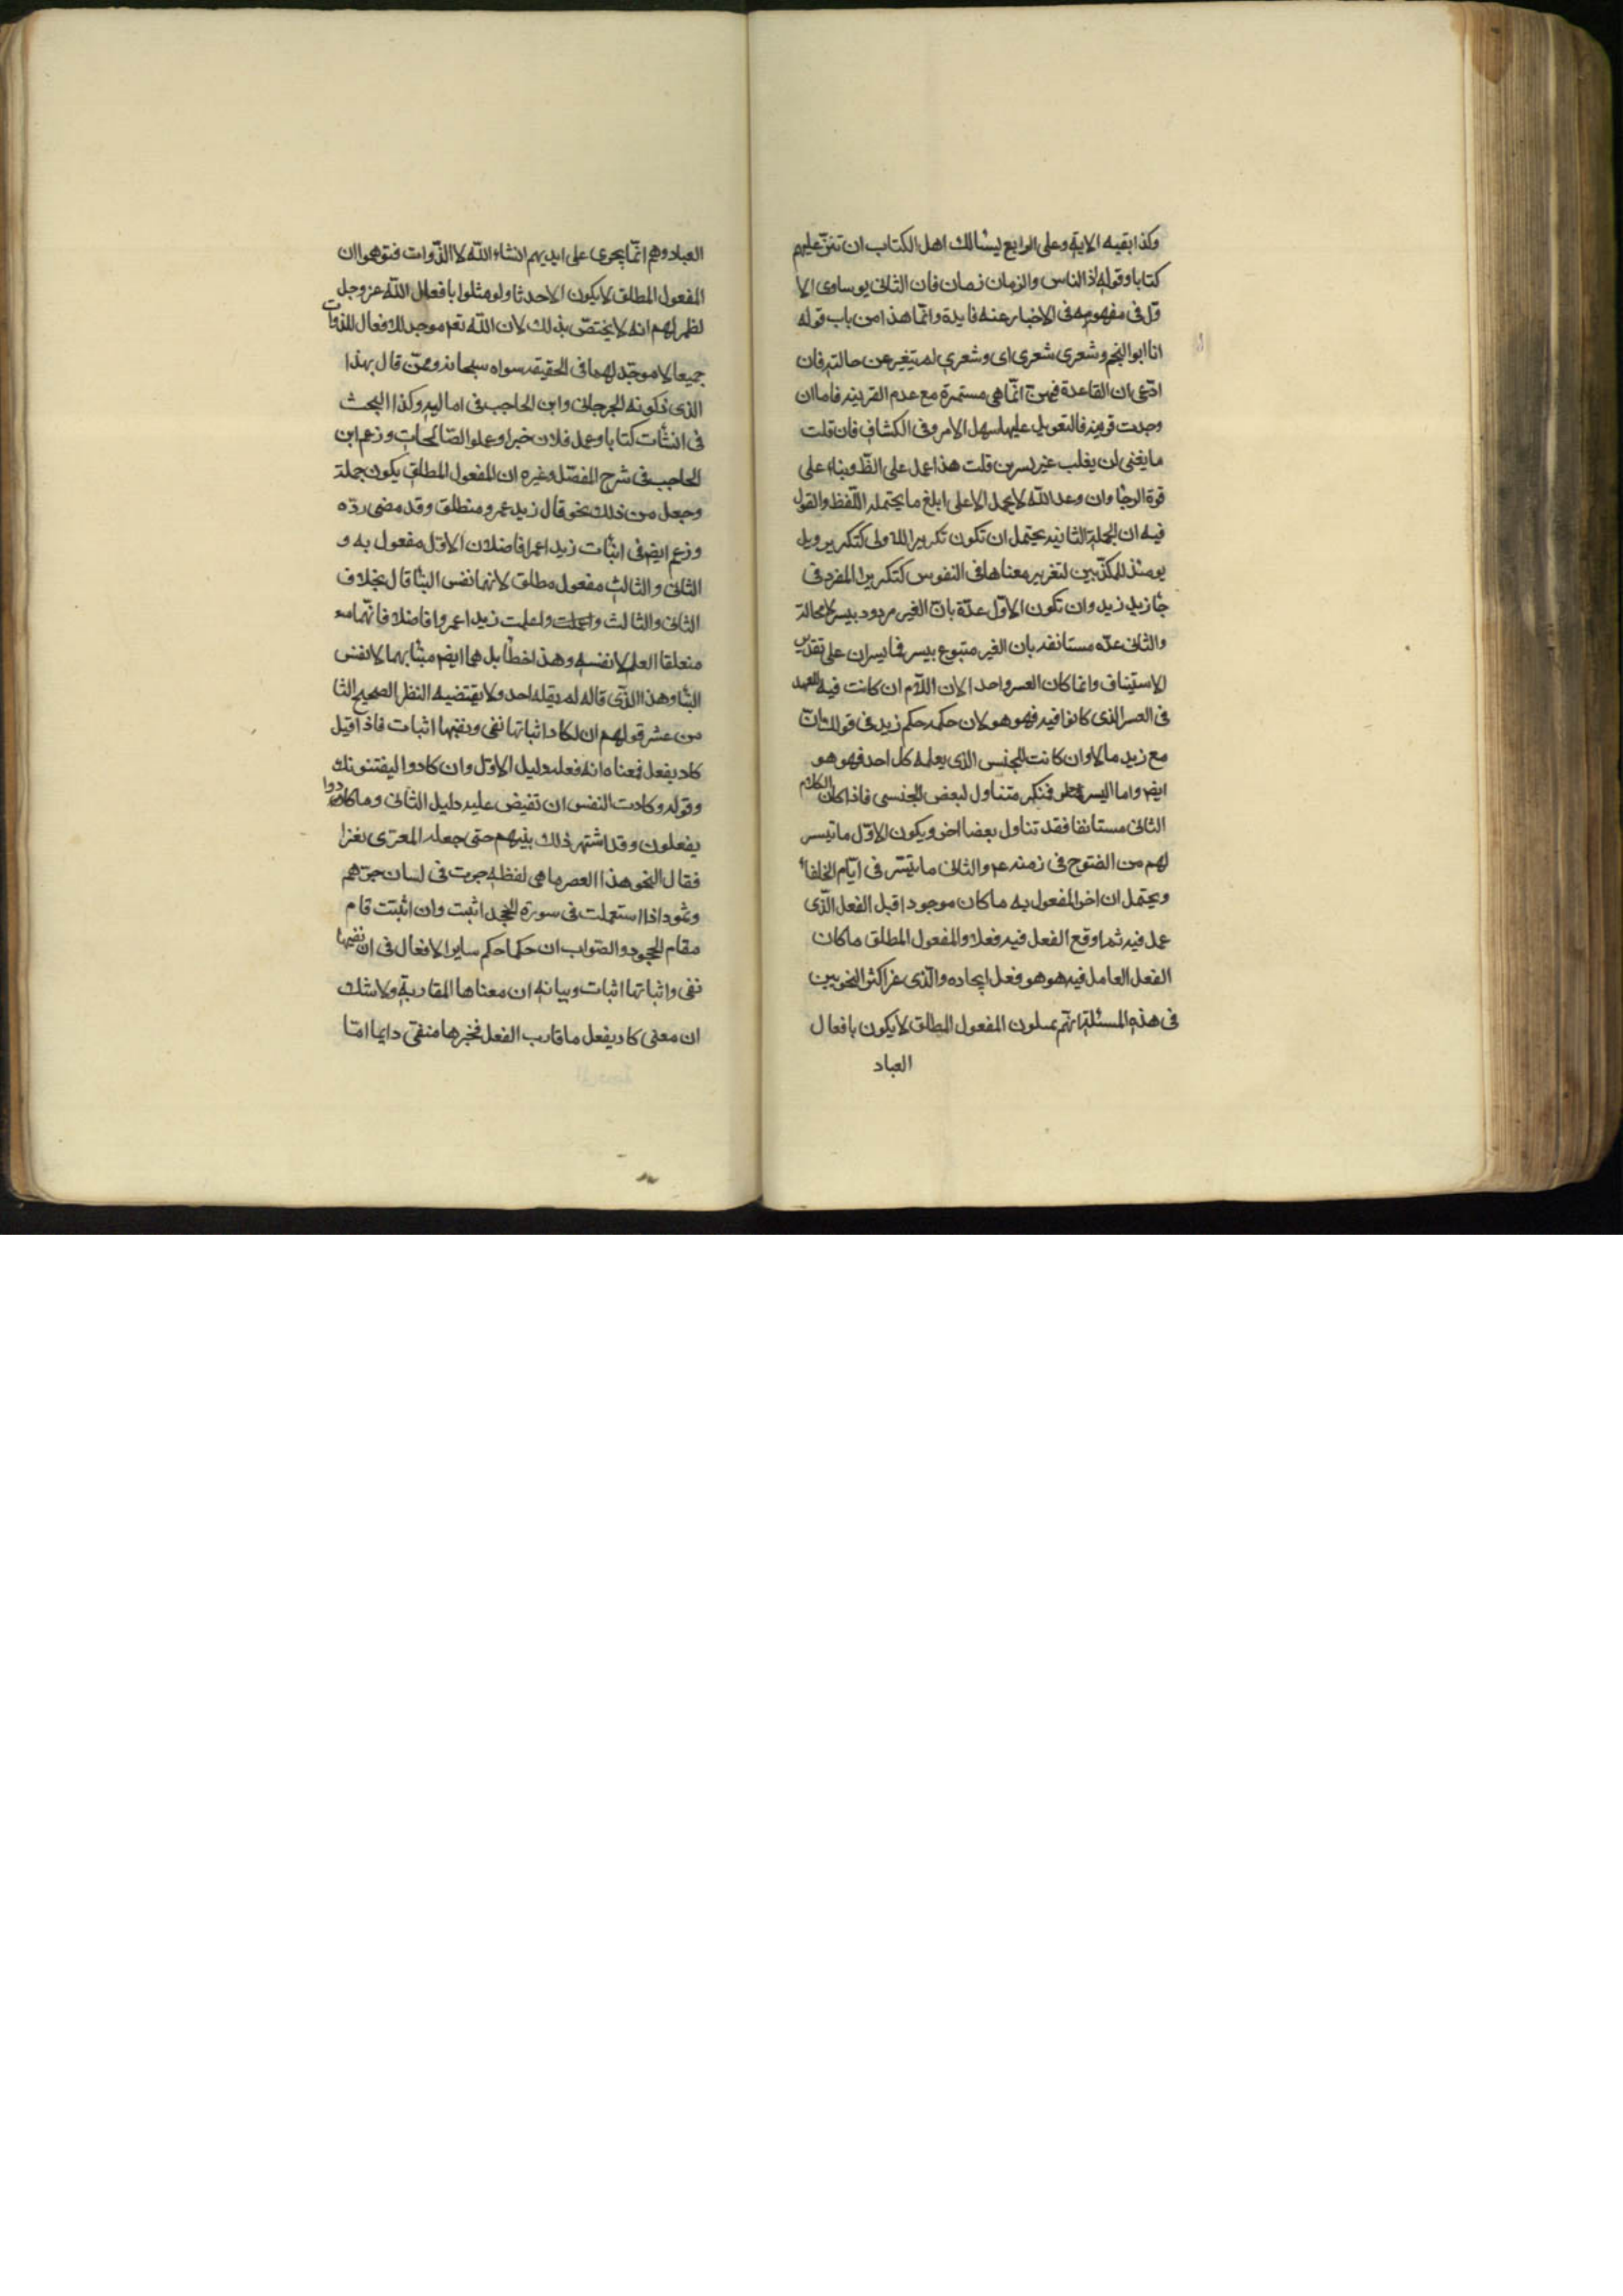 وكذا بقيه الاية وعلى الرابع يسئالك اهل الكتاب ان تنزّ عليهم
كتابا وقوله اذ الناس والزمان زمان فان الثانى يو ساوى الا
وّل فى مفهومه فى الاخبار عنه فايدة وانّما هذا من باب قوله
انا ابو النجم وشعرى شعرى اى وشعرى لم يتغير عن حالته فان
ادّعى ان القاعدة فيهنّ انّما هى مستمرة مع عدم القرينه فاما ان
وجدت قرينه فالتعويل عليها سهل الامر وفى الكشاف فان قلت
ما يغنى لن يغلب عسر يسرين قلت هذا عمل على الظ وبناء على
قوة الرجأ وان وعد الله لا يحمل الا على ابلغ ما يحتمله اللّفظ والقول
فيه ان الجملة الثانيه يحتمل ان تكون تكريرا للاولى كتكرير ويل
يومئذ للمكذّبين لتقرير معناها فى النفوس كتكريرا لمفرد فى
جأ زيد زيد وان تكون الاوّل عدّة بانّ العسر مردود بيسر لامحالة
والثانى عدّه مستانفه بان العسر متبوع بيسر فما يسران على تقدير
الاستيناف وانما كان العسر واحد الان اللّام ان كانت فيه للعهد
فى العسر الذى كانوا فيه فهو هو لان حكمه حكم زيد فى قولك انّ
مع زيد مالا وان كانت للجنس الذى يعلمه كل احد فهو هو
ايض واما اليسر فمنكر متناول لبعض الجنسى فاذا كان الكلام
الثانى مستانفا فقد تناول بعضا اخر ويكون الاوّل ما تيسر
لهم من الفتوح فى زمنه عم والثانى ما تيسّر فى ايّام الخلفاء
ويحتمل ان اخر المفعول به ما كان موجودا قبل الفعل الذّى
عمل فيه ثم اوقع الفعل فيه فعلا والمفعول المطلق ما كان
الفعل العامل فيه هو هو فعل ايجاده والذى غرّ اكثر النحويين
فى هذه المسئلة انهّم يمسلون المفعول المطلق لا يكون بافعال
العباد
العباد وهم انّما يجرى على ايديهم انشاء الله لا الذّوات فتوهموا ان
المفعول المطلق لا يكون الا حدثا ولو مثلوا بافعال اللّه عز وجل
لظهر لهم انه لا يختصّ بذلك لان اللّه تعم موجد للافعال للذوات
جميعا لا موجّد لهما فى الحقيقه سواه سبحانه وممّن قال بهذا
الذى ذكرته الجرجانى وابن الحاجب فى اماليه وكذا البحث
فى انشأت كتابا وعمل فلان خيرا وعملوا الصّالحات وزعم ابن
الحاجب فى شرح المفصّل وغيره ان المفعول المطلق يكون جملة
وجعل من ذلك نحو قال زيد عمرو منطلق وقد مضى ردّه
وزعم ايض فى انبأت زيدا عمرا فاضلا ان الاوّل مفعول به و
الثانى والثالث مفعول مطلق لانهما نفس النبأ قال بخلاف
الثانى والثالث واعملت واعلمت زيدا عمروا فاضلا فانّهما مع
متعلقا العلم لا نفسه وهذا خطأ بل هما ايض منبأ بهما لا نفس
النبأ وهذا الذّى قاله لم يقله احد ولا يقتضيه النظر الصحيح الثا
من عشر قولهم ان لكاد اثباتها نفى ونفيها اثبات فاذا قيل
كاد يفعل فمعناه انه فعله دليل الاوّل وان كادوا ليفتنونك
وقوله وكادت النفس ان تفيض عليه دليل الثانى وما كادوا
يفعلون وقد اشتهر ذلك بينهم حتى جعله المعرّى لغزا
فقال النحو هذا العصر ما هى لفظه جرت فى لسان جرهم
وثمود اذا استعملت فى سورة الجحد اثبت وان اثبتت قام
مقام الجحود والصّواب ان حكما حكم ساير الافعال فى ان نفيها
نفى واثباتها اثبات وبيانه ان معناها المقاربة ولا شك
ان معنى كاد يفعل ما قارب الفعل فخبرها منفىّ دايما امّا